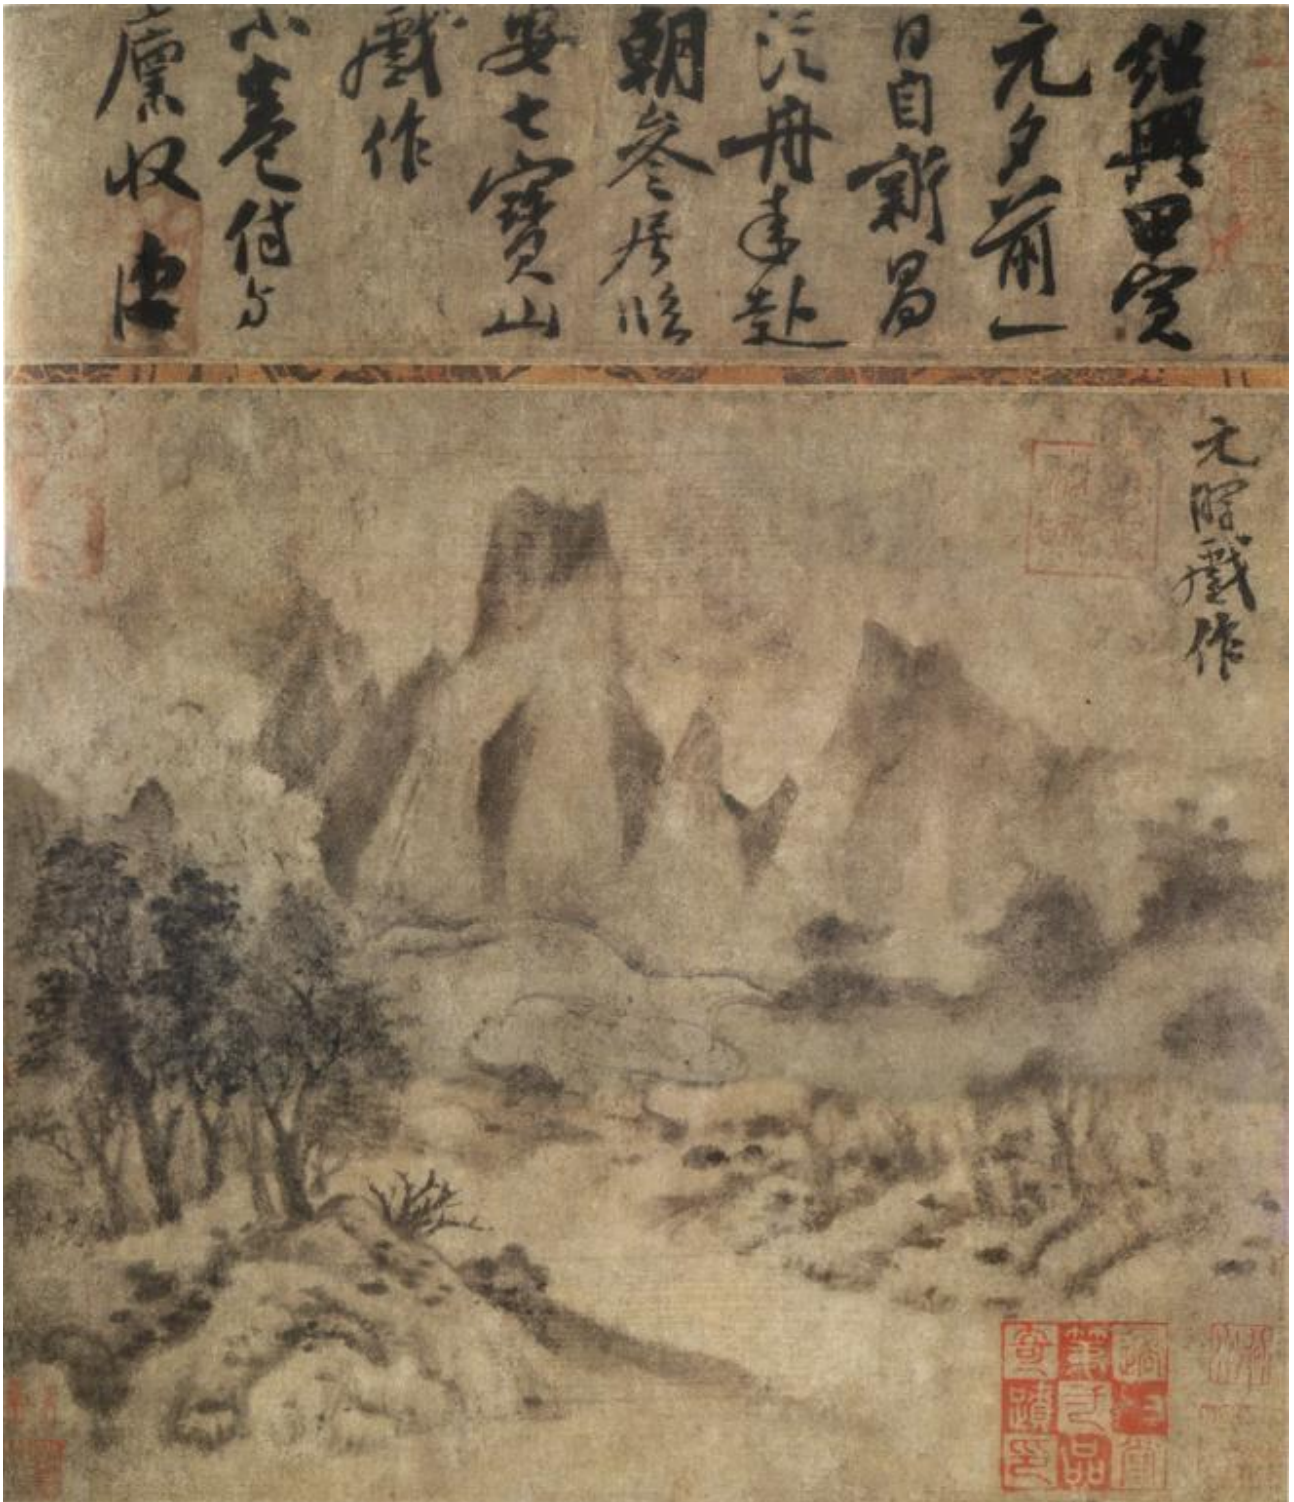 紹興甲寅
元夕前一
日自新昌
泛舟來赴
朝參居臨
安七寶山
戲作
小卷付与
廩收
元暉戲作